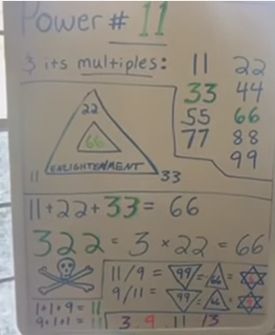 Power # 11
& its multiples:
11 22
33 44
55 66
77 88
99
22
66
ENLIGHTENMENT
11
33
11+22+33= 66
322 = 3 × 22 = 66
11/9 = 99 = 66 =
9/11 = 99 = 66 =
1+1+9 = 11
9+1+1 = 11
3 9 11 13